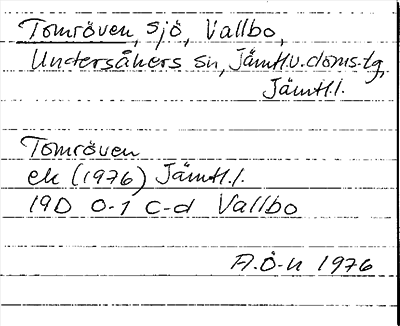 Tomröven, sjö, Vallbo,
Undersåkers sn, Jämtl.v.doms.lg,
Jämtl.l.
Tomröven
ek (1976) Jämtl.l.
19D 0-1 c-d Vallbo
A.Ö-n 1976